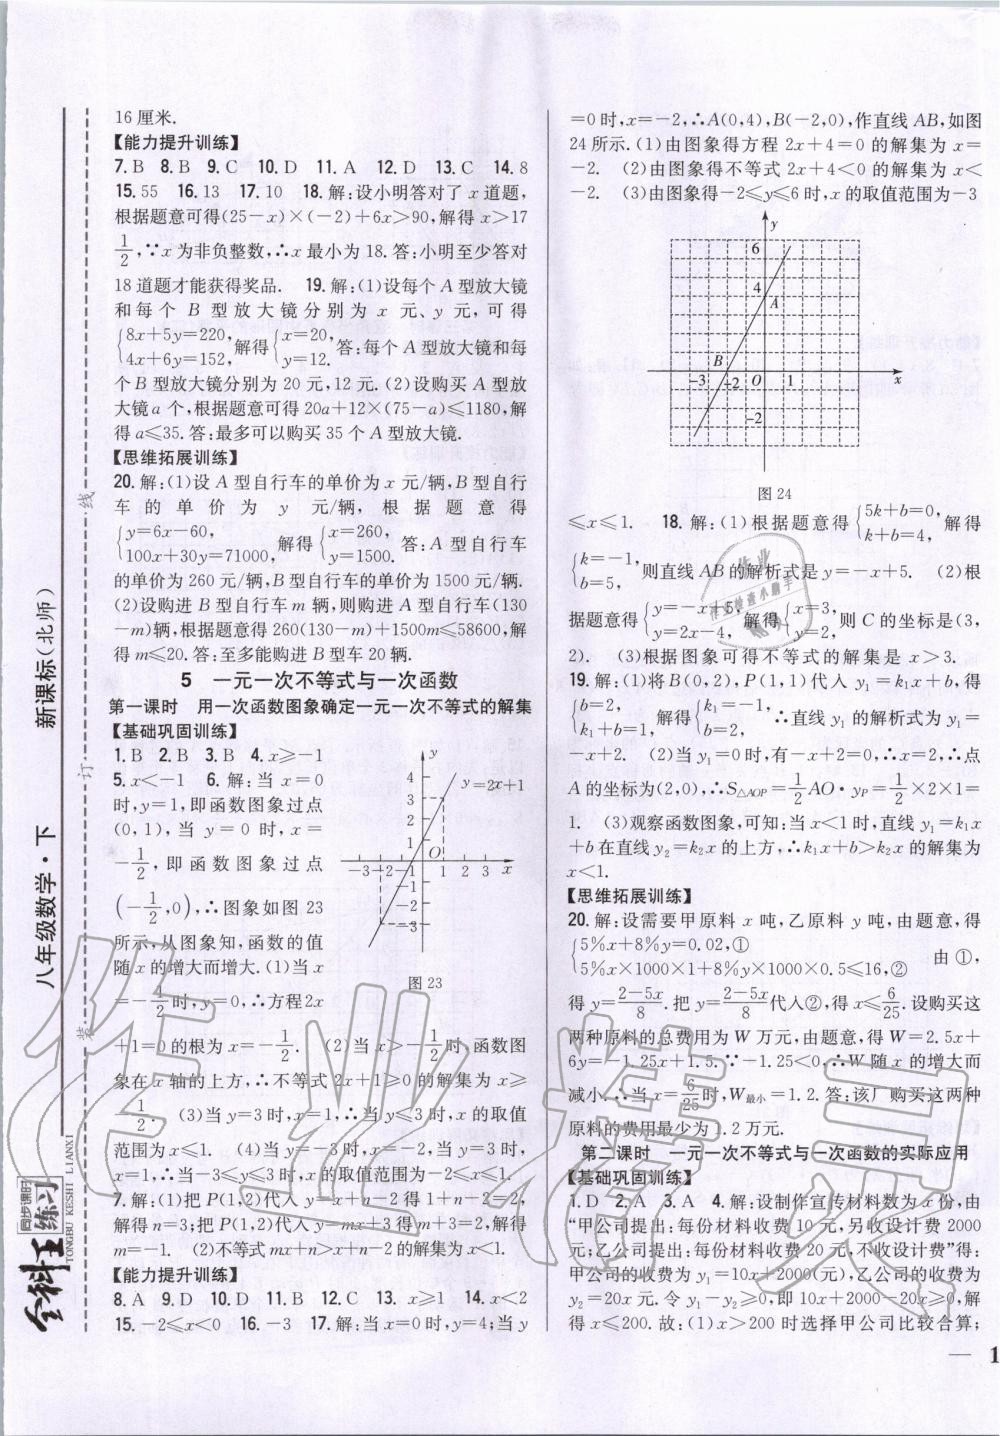 16厘米.
【能力提升训练】
7. B 8. B 9. C 10. D 11. A 12. D 13. C 14. 8
15. 55 16. 13 17. 10 18. 解:设小明答对了 x 道题,
根据题意可得(25-x)×(-2)+6x>90,解得 x>17
1/2,∵x 为非负整数,∴x 最小为 18. 答:小明至少答对
18 道题才能获得奖品. 19. 解:(1)设每个 A 型放大镜
和每个 B 型放大镜分别为 x 元、y 元,可得
{8x+5y=220, 4x+6y=152, 解得{x=20, y=12. 答:每个 A 型放大镜和每
个 B 型放大镜分别为 20 元,12 元. (2)设购买 A 型放
大镜 a 个,根据题意可得 20a+12×(75-a)≤1180,解
得 a≤35. 答:最多可以购买 35 个 A 型放大镜.
【思维拓展训练】
20. 解:(1)设 A 型自行车的单价为 x 元/辆,B 型自行
车的单价为 y 元/辆,根据题意得
{y=6x-60, 100x+30y=71000, 解得{x=260, y=1500. 答:A 型自行车
的单价为 260 元/辆,B 型自行车的单价为 1500 元/辆.
(2)设购进 B 型自行车 m 辆,则购进 A 型自行车(130
-m)辆,根据题意得 260(130-m)+1500m≤58600,解
得 m≤20. 答:至多能购进 B 型车 20 辆.
5 一元一次不等式与一次函数
第一课时 用一次函数图象确定一元一次不等式的解集
【基础巩固训练】
1. B 2. B 3. B 4. x≥-1
5. x<-1 6. 解:当 x=0
时,y=1,即函数图象过点
(0,1),当 y=0 时,x=
-1/2,即函数图象过点
(-1/2,0),∴图象如图 23
所示,从图象知,函数的值
随 x 的增大而增大. (1)当 x
=-1/2时,y=0,∴方程2x
+1=0 的根为 x=-1/2. (2)当 x>-1/2时,函数图
象在 x 轴的上方,∴不等式 2x+1≥0 的解集为 x≥
-1/2. (3)当 y=3 时,x=1,∴当 y≤3 时,x 的取值
范围为 x≤1. (4)当 y=-3 时,x=-2,当 y=3 时,
x=1,∴当-3≤y≤3 时,x 的取值范围为-2≤x≤1.
7. 解:(1)把 P(1,2)代入 y=x+n-2 得 1+n-2=2,
解得 n=3;把 P(1,2)代入 y=mx+3 得 m+3=2,解得
m=-1. (2)不等式 mx+n>x+n-2 的解集为 x<1.
【能力提升训练】
8. A 9. D 10. D 11. B 12. C 13. x≥1 14. x<2
15. -2≤x<0 16. -3 17. 解:当 x=0 时,y=4;当 y
y
4
3
2
1
y=2x+1
O
-3 -2 -1
1 2 3 x
-1
-2
-3
图 23
=0 时,x=-2,∴A(0,4),B(-2,0),作直线 AB,如图
24 所示. (1)由图象得方程 2x+4=0 的解集为 x=
-2. (2)由图象得不等式 2x+4<0 的解集为 x<
-2. (3)由图象得-2≤y≤6 时,x 的取值范围为-3
y
6
4
A
B
-3 -2 O 1 x
-2
图 24
≤x≤1. 18. 解:(1)根据题意得{5k+b=0, k+b=4, 解得
{k=-1, b=5, 则直线 AB 的解析式是 y=-x+5. (2)根
据题意得{y=-x+5, y=2x-4, 解得{x=3, y=2, 则 C 的坐标是(3,
2). (3)根据图象可得不等式的解集是 x>3.
19. 解:(1)将 B(0,2),P(1,1)代入 y₁=k₁x+b,得
{b=2, k₁+b=1, 解得{k₁=-1, b=2, ∴直线 y₁ 的解析式为 y₁=
-x+2. (2)当 y₁=0 时,有-x+2=0,∴x=2,∴点
A 的坐标为(2,0),∴S△AOP=1/2 AO·yP=1/2×2×1=
1. (3)观察函数图象,可知:当 x<1 时,直线 y₁=k₁x
+b 在直线 y₂=k₂x 的上方,∴k₁x+b>k₂x 的解集为
x<1.
【思维拓展训练】
20. 解:设需要甲原料 x 吨,乙原料 y 吨,由题意,得
{5%x+8%y=0.02,① 5%x×1000×1+8%y×1000×0.5≤16,② 由①,
得 y=(2-5x)/8. 把 y=(2-5x)/8代入②,得 x≤6/25. 设购买这
两种原料的总费用为 W 万元,由题意,得 W=2.5x+
6y=-1.25x+1.5. ∵-1.25<0,∴W 随 x 的增大而
减小. ∴当 x=6/25时,W最小=1.2. 答:该厂购买这两种
原料的费用最少为 1.2 万元.
第二课时 一元一次不等式与一次函数的实际应用
【基础巩固训练】
1. D 2. A 3. A 4. 解:设制作宣传材料数为 x 份,由
“甲公司提出:每份材料收费 10 元,另收设计费 2000
元;乙公司提出:每份材料收费 20 元,不收设计费”得:
甲公司的收费为 y₁=10x+2000(元),乙公司的收费为
y₂=20x 元. 令 y₁-y₂≥0,即 10x+2000-20x≥0,解
得 x≤200. 故:(1)x>200 时选择甲公司比较合算;
— 1
新课标(北师)
八年级数学·下
装 订 线
同步课时
全科王练习
TONGBU KESHI LIANXI
作业精灵